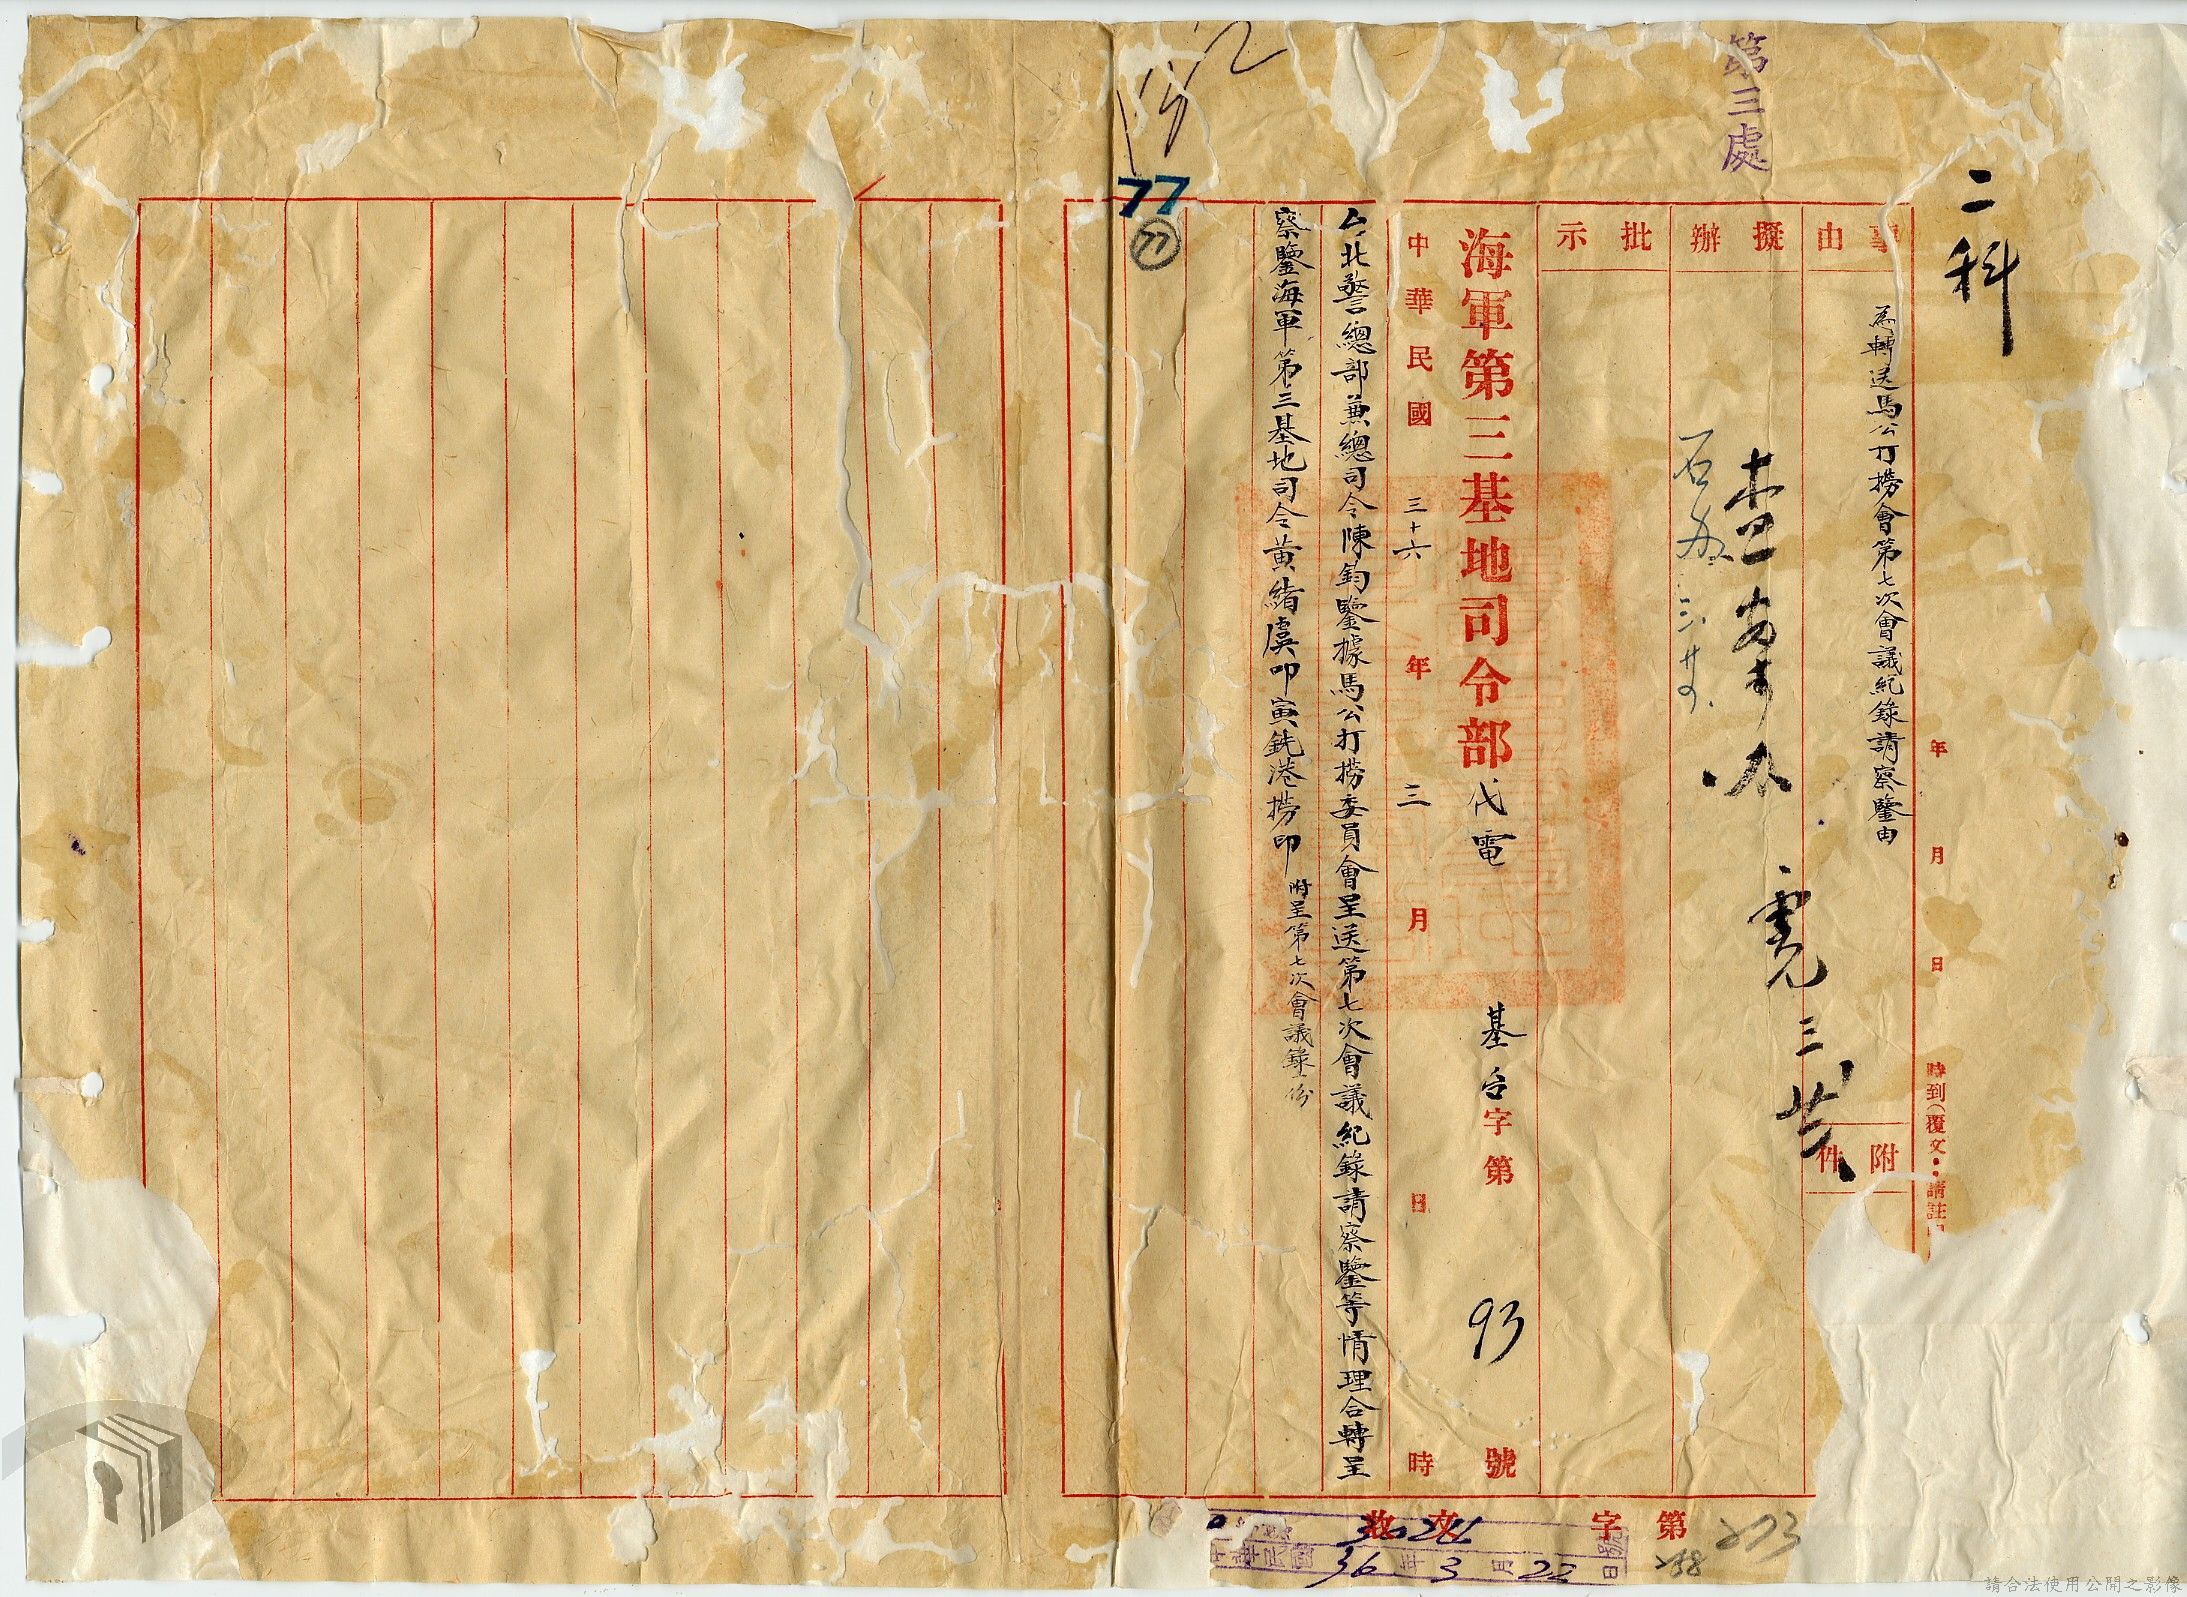 第三處
二科
年 月 日 時到(覆文:請註
事由
為轉送馬公打撈會第七次會議紀錄請察鑒由
附件
擬辦
批示
海軍第三基地司令部代電 基台字第 93 號
中華民國三十六年三月 日 時
台北警總部兼總司令陳鈞鑒據馬公打撈委員會呈送第七次會議紀錄請察鑒等情理合轉呈
察鑒海軍第三基地司令黃緒虞叩寅銑港撈印 附呈第七次會議錄一份
77
77
第 字
收文
36 年 3 月 22 日
273
288
請合法使用公開之影像